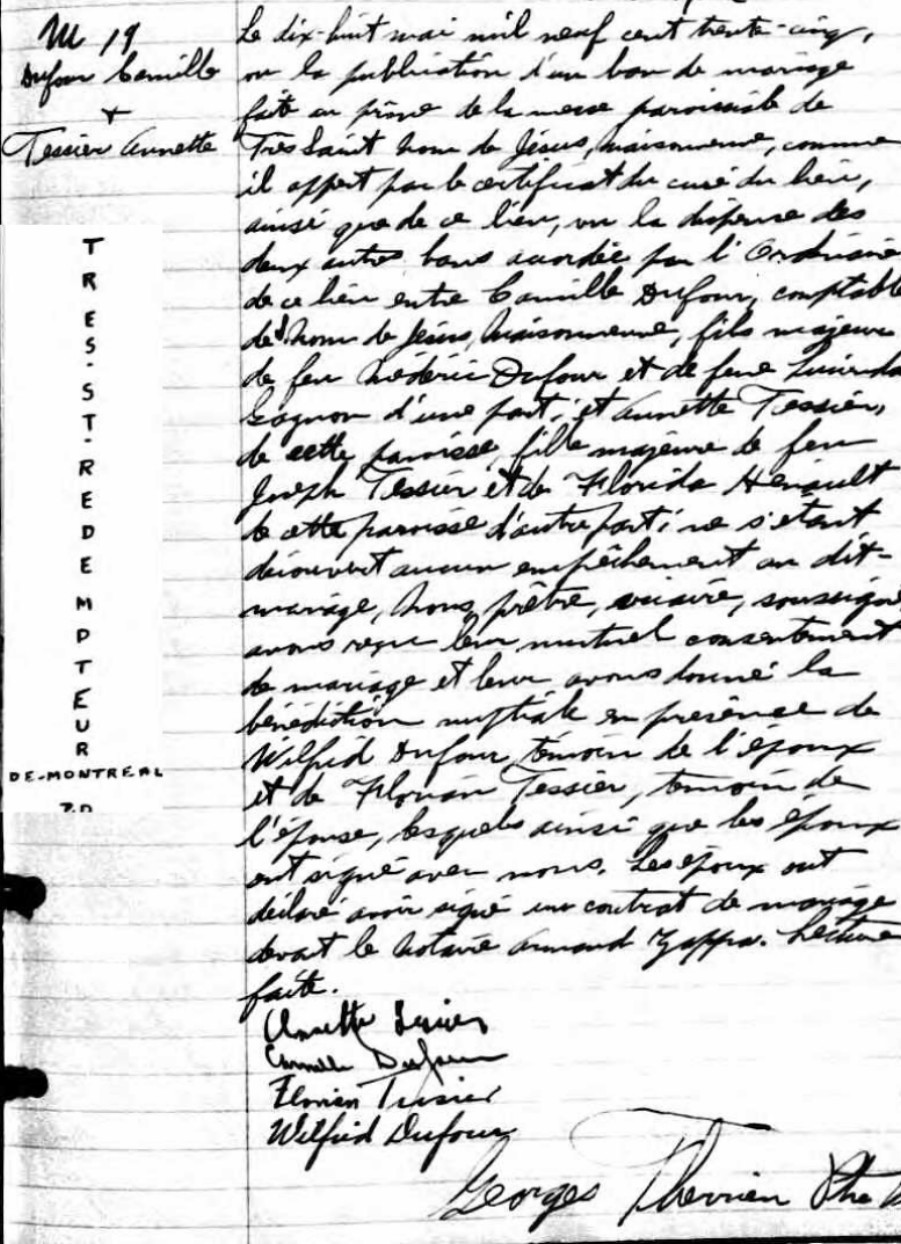 M 19
Dufour Camille
+
Tessier Annette
TRES-ST-REDEMPTEUR
DE-MONTREAL
Le dix-huit mai mil neuf cent trente-cinq,
vu la publication d'un ban de mariage
faite au prône de la messe paroissiale de
Très Saint nom de Jésus, Maisonneuve, comme
il appert par le certificat du curé du lieu,
ainsi que de ce lieu, vu la dispense des
deux autres bans accordée par l'Ordinaire
de ce lieu entre Camille Dufour, comptable
de S. nom de Jésus, Maisonneuve, fils majeur
de feu Médéric Dufour et de feue Lucinda
Gagnon d'une part; et Annette Tessier,
de cette paroisse, fille majeure de feu
Joseph Tessier et de Florida Henault
de cette paroisse d'autre part; ne s'étant
découvert aucun empêchement au dit-
mariage, Nous, prêtre, vicaire, soussigné
avons reçu leur mutuel consentement
de mariage et leur avons donné la
bénédiction nuptiale en présence de
Wilfrid Dufour, témoin de l'époux
et de Florian Tessier, témoin de
l'épouse, lesquels ainsi que les époux
ont signé avec nous. Les époux ont
déclaré avoir signé un contrat de mariage
devant le notaire Armand Zappa. Lecture
faite.
Annette Tessier
Camille Dufour
Florian Tessier
Wilfrid Dufour
Georges Therrien Ptre